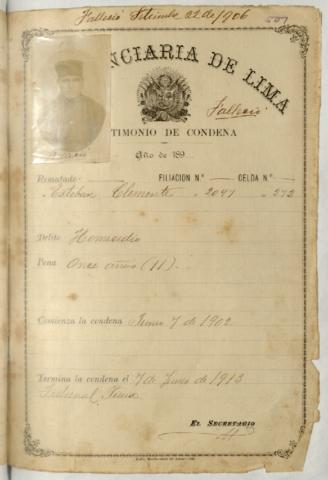 Falleció Setiembre 22 de 1906
507
NCIARIA DE LIMA
Falleció
TIMONIO DE CONDENA
Año de 189
Rematado FILIACION N.º CELDA N.º
Esteban Clemente 2097 272
Delito Homicidio
Pena Once años (11).
Comienza la condena Junio 7 de 1902
Termina la condena el 7 de Junio de 1913
Tribunal
EL SECRETARIO